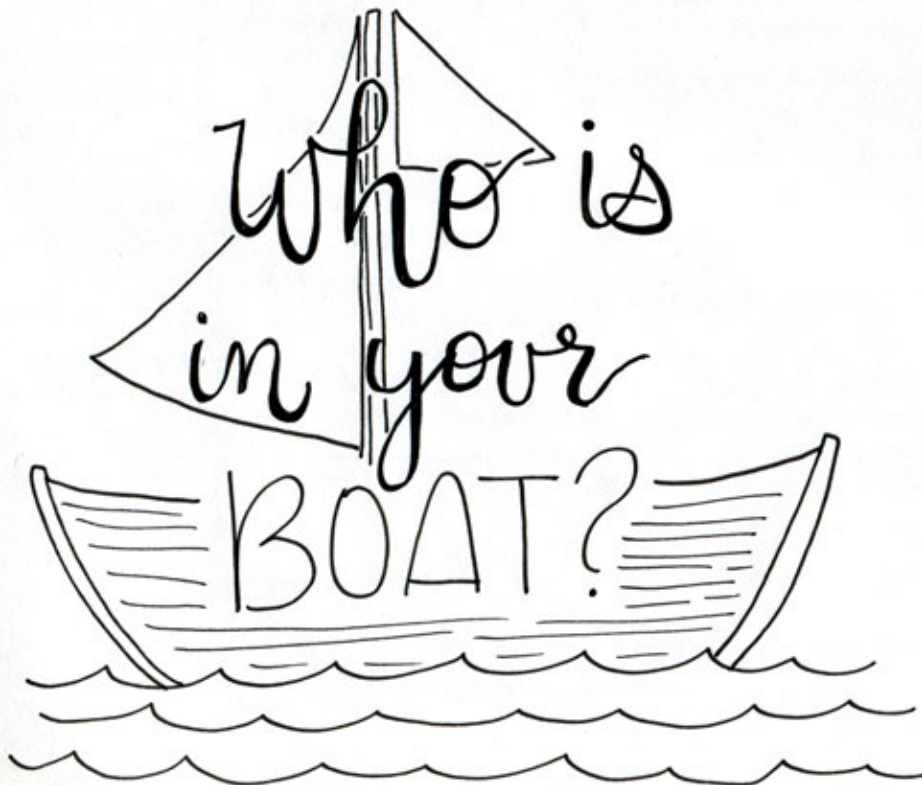 Who is
in your
BOAT?